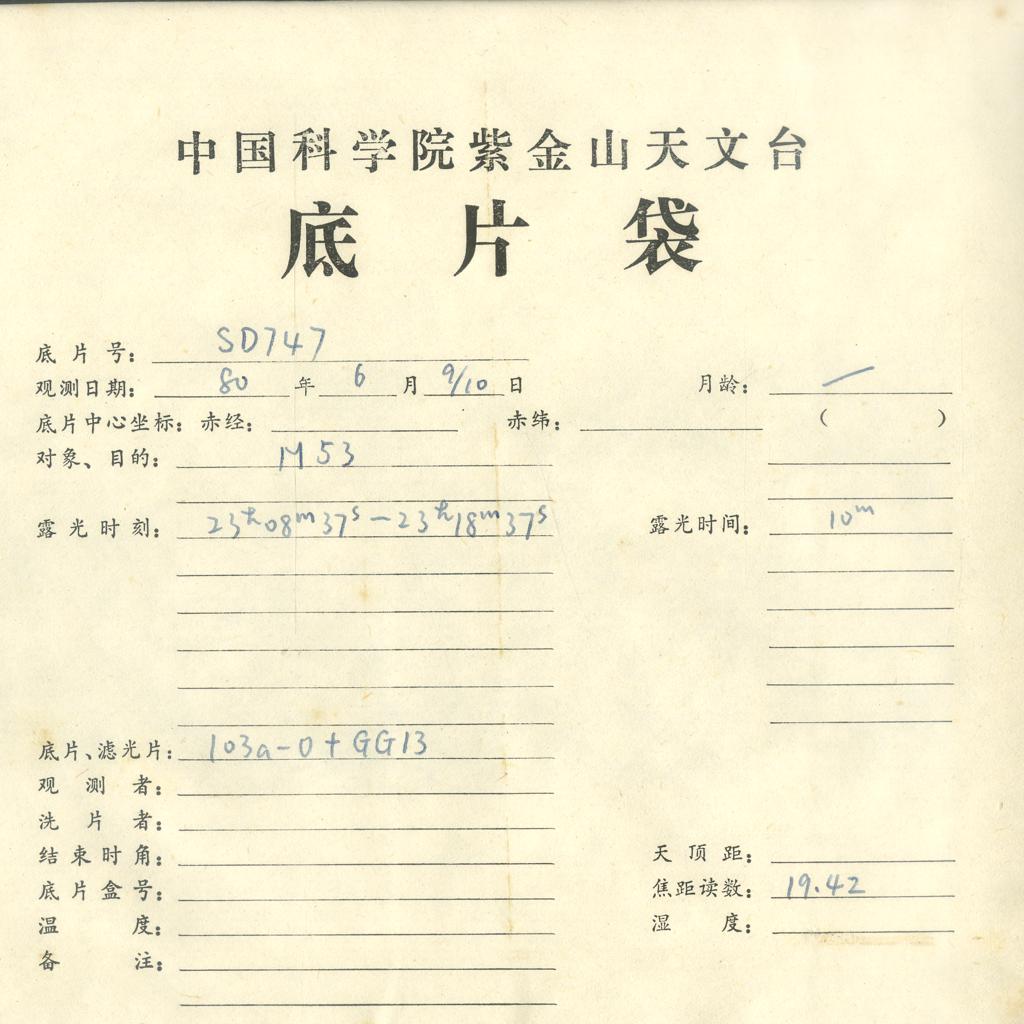 中国科学院紫金山天文台
底片袋
底片号: SD747
观测日期: 80年 6月 9/10日 月龄: —
底片中心坐标: 赤经: 赤纬: ( )
对象、目的: M53
露光时刻: 23h08m37s—23h18m37s 露光时间: 10m
底片、滤光片: 103a-O+GG13
观测者:
洗片者:
结束时角: 天顶距:
底片盒号: 焦距读数: 19.42
温度: 湿度:
备注: